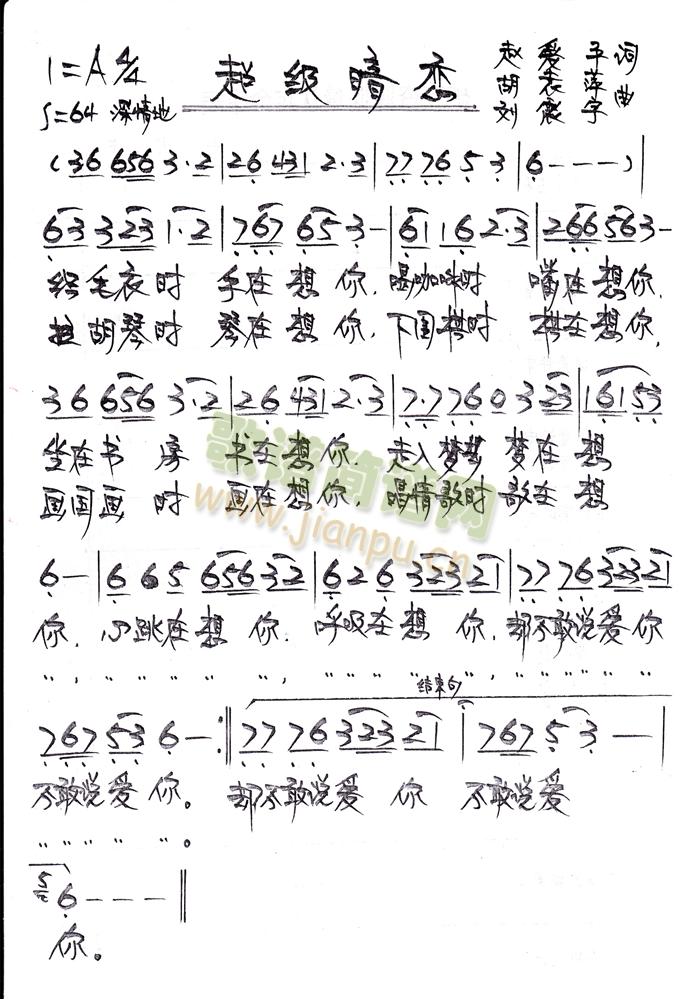 1=A 4/4 超级暗恋 赵爱平词
胡表萍
刘震宇曲
♩=64 深情地
(36 656 3·2|26 431 2·3|77 76 5 3|6---)
63 3 23 1·2|767 65 3-|61 16 2·3|266 563-
织毛衣时 手在想你,喝咖啡时 嘴在想你,
拉胡琴时 琴在想你,下围棋时 棋在想你,
36 656 3·2|26 431 2·3|7·7 76 0 3 23|161 53
坐在书房 书在想你.走入梦 梦在想
画国画时 画在想你,唱情歌时 歌在想
6-|6 6 5 656 32|6 2 6 323 21|77 76 323 21
你,心跳在想你.呼吸在想你,却不敢说爱你
〃,〃〃〃〃〃,〃〃〃〃〃,〃〃〃〃〃〃
结束句
767 53 6-:‖77 76 323 21|767 5 3--|
不敢说爱你。却不敢说爱你 不敢说爱
〃〃〃〃〃。
6---‖
你。
歌谱简谱网
www.jianpu.cn